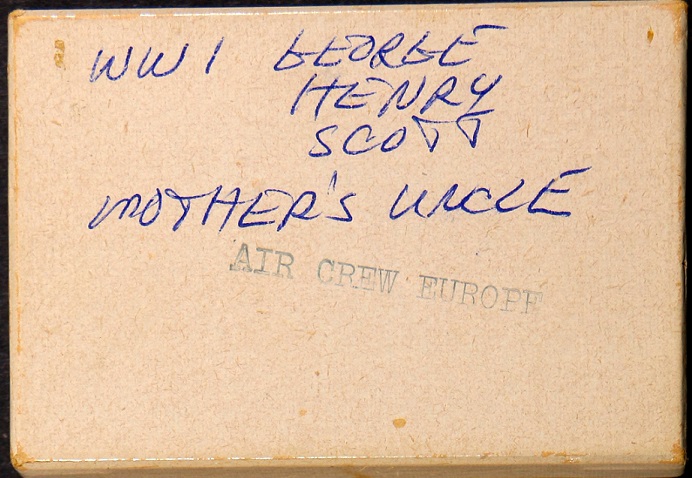 WW1 GEORGE
HENRY
SCOTT
MOTHER'S UNCLE
AIR CREW EUROPE